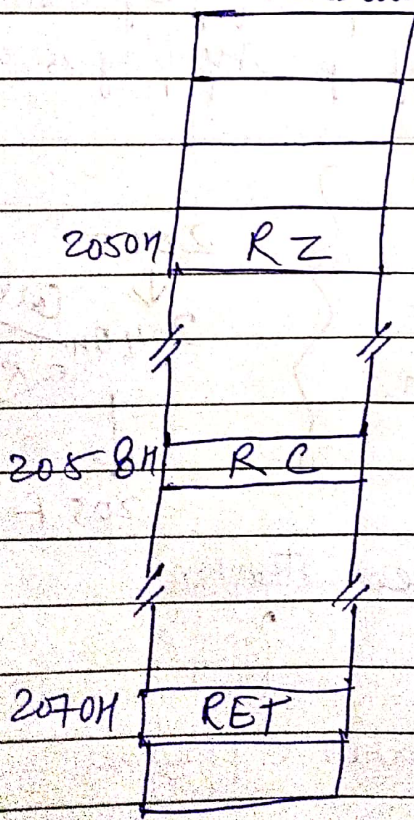 2050H RZ
2058H RC
2070H RET